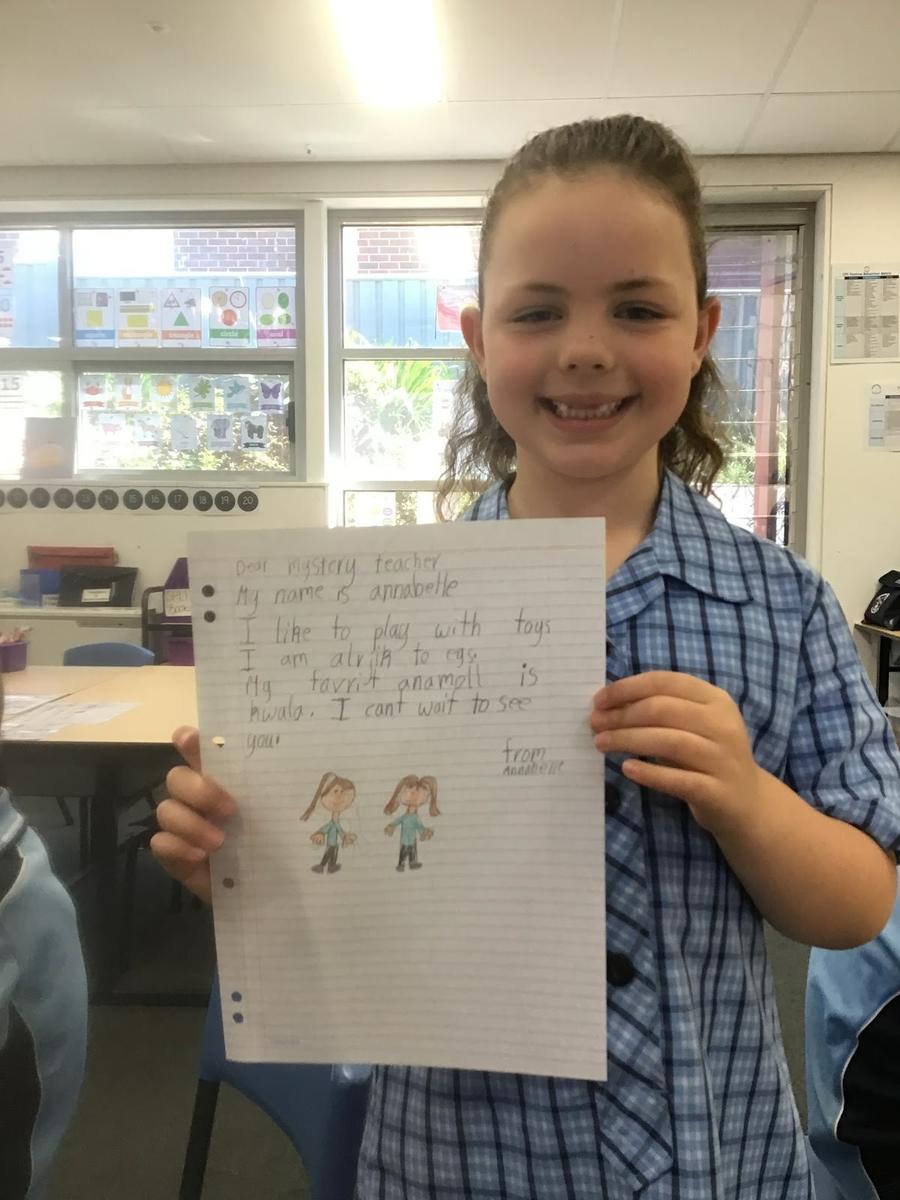 Dear mystery teacher
My name is annabelle
I like to play with toys
I am alrjik to egs.
My favrit anamoll is
kwala. I cant wait to see
you.
from
Annabelle
15
12 13 14 15 16 17 18 19 20